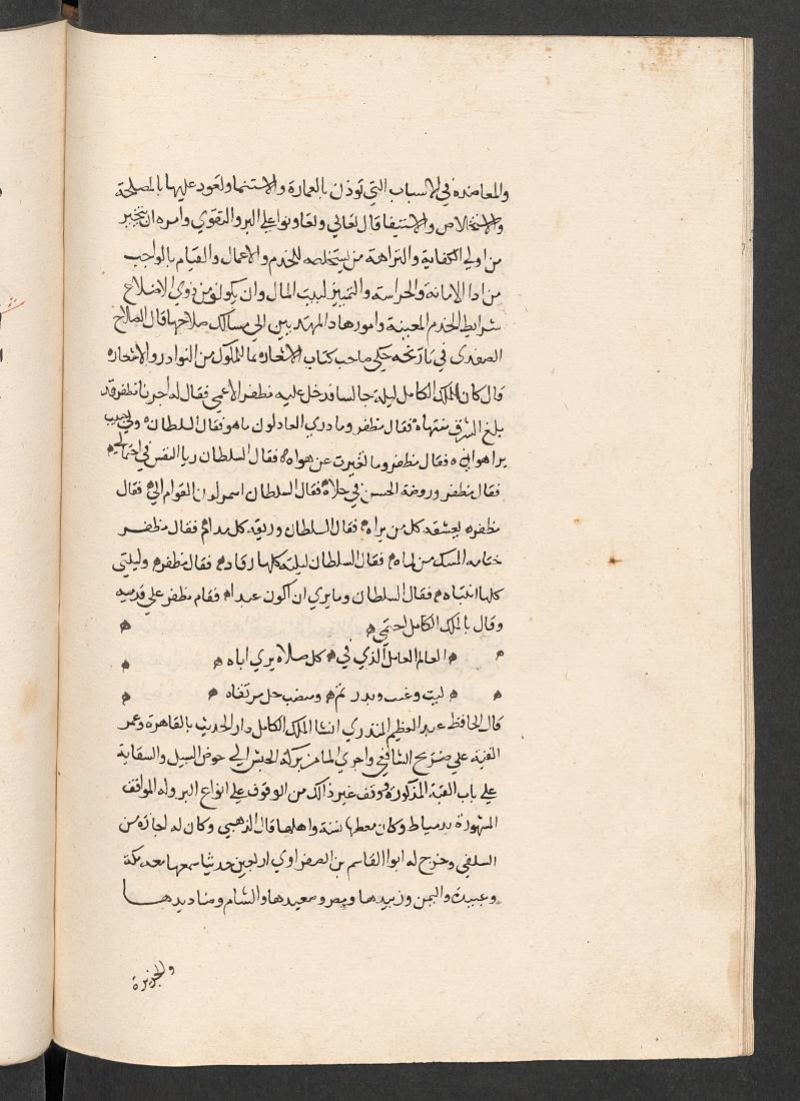 والمعاضده في الاسباب التي توذن بالعمارة والاستنما ولعود عليها بالمصلحة
والاستخلاص والاستيفا قال تعالي وتعاونوا علي البر والتقوي وامره ان يتخير
من اولي الكفاية والنزاهة من يستخلصه للخدم والاعمال والقيام بالواجب
من ادا الامانة والحراسة والتمييز لبيت المال وان يكونو من ذوي الاضلاع
شرايط الخدم المعينة وامورها والمهتدين الي مسالك صلاحها قال الصلاح
الصفدي في تاريخه حكي صاحب كتاب الاشعار بما للملوك من النوادر والاشعاره
قال كان الملك الكامل ليلة جالسا فدخل عليه مظفر الاعمي فقال له اجزيا مظفر قد
بلغ الشوق منتهاه فقال مظفر وما دري العاذلون ماهو فقال السلطان ولي حبيب
يراهواني فقال مظفر وما تغيرت عن هواه فقال السلطان رياالنفس في احتمالي
فقال مظفر وروضة الحسن في حلاه فقال السلطان اسمر لدن القوام الي فقال
مظفره يعشقه كل من يراه فقال السلطان وريقه كل مدام فقال مظفر
ختامه المسك من لماه فقال السلطان ليلته كلها رقاد فقال مظفره وليلتي
كلها انتباه فقال السلطان وما يري ان اكون عبدا فقام مظفر علي قدميه
وقال بالملك الكامل احتمي
العالم العامل الذي في كل صلاه يري اباه
ليث وغيث وبدر تم ومنصب جل مرتقاه
قال الحافظ عبد العظيم المنذري انشا الملك الكامل دار الحديث بالقاهرة وعمر
القبة علي ضريح الشافعي واجري الما من بركة الحبش الي حوض السبيل والسقاية
علي باب القبة المذكورة ووقف غير ذالك من الوقوف علي انواع البر وله المواقف
المشهورة بدمياط وكان معظما للسنة واهلها قال الذهبي وكان له اجازه من
السلفي وخرج له ابوالقاسم بن الصفراوي اربعين حديثا سمعها بعد مكة
وعبيدة واليمن وزبيدها ومصر وصعيدها والشام وصناديدها
والجزيرة